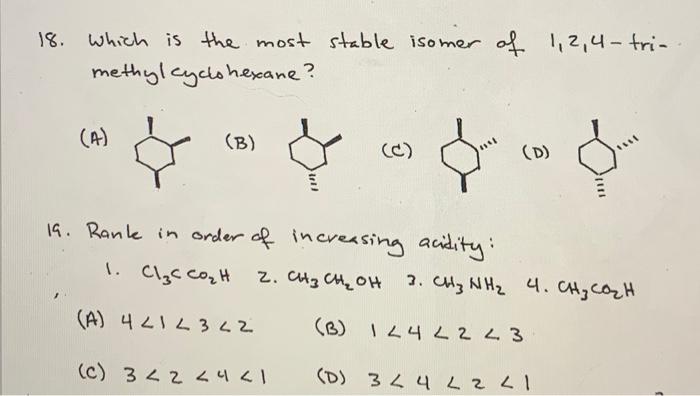 18. Which is the most stable isomer of 1,2,4-tri-
methylcyclohexane?
(A) (B) (C) (D)
19. Rank in order of increasing acidity:
1. Cl₃CCO₂H 2. CH₃CH₂OH 3. CH₃NH₂ 4. CH₃CO₂H
(A) 4<1<3<2 (B) 1<4<2<3
(C) 3<2<4<1 (D) 3<4<2<1